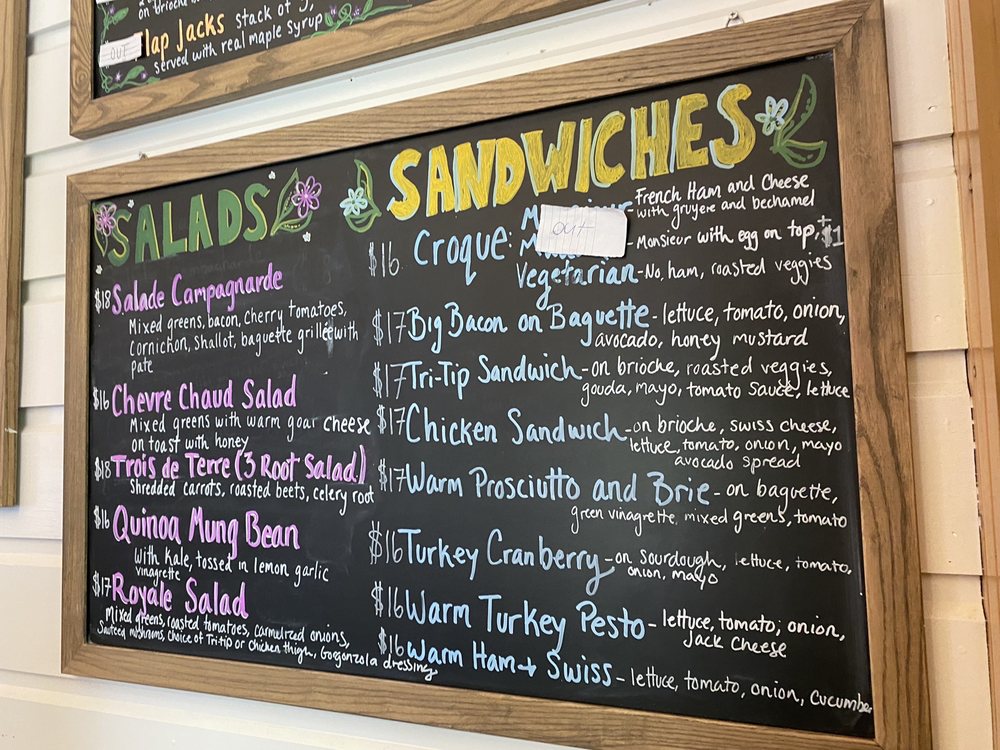 on brioche
out
lap Jacks stack of 3,
served with real maple syrup
SALADS
$18 Salade Campagnarde
Mixed greens, bacon, cherry tomatoes,
cornichon, shallot, baguette grillée with
pate
$16 Chevre Chaud Salad
Mixed greens with warm goat cheese
on toast with honey
$18 Trois de Terre (3 Root Salad)
Shredded carrots, roasted beets, celery root
$16 Quinoa Mung Bean
With kale, tossed in lemon garlic
vinagrette
$17 Royale Salad
Mixed greens, roasted tomatoes, carmelized onions,
Sauteed mushrooms, choice of Tri-tip or Chicken thigh, Gorgonzola dressing
SANDWICHES
French Ham and Cheese
with gruyere and bechamel
out
$16 Croque: - Monsieur with egg on top, +$1
Vegetarian - No, ham, roasted veggies
$17 Big Bacon on Baguette - lettuce, tomato, onion,
avocado, honey mustard
$17 Tri-Tip Sandwich - on brioche, roasted veggies,
gouda, mayo, tomato sauce, lettuce
$17 Chicken Sandwich - on brioche, swiss cheese,
lettuce, tomato, onion, mayo
avocado spread
$17 Warm Prosciutto and Brie - on baguette,
green vinagrette, mixed greens, tomato
$16 Turkey Cranberry - on sourdough, lettuce, tomato,
onion, mayo
$16 Warm Turkey Pesto - lettuce, tomato, onion,
Jack cheese
$16 Warm Ham + Swiss - lettuce, tomato, onion, cucumber